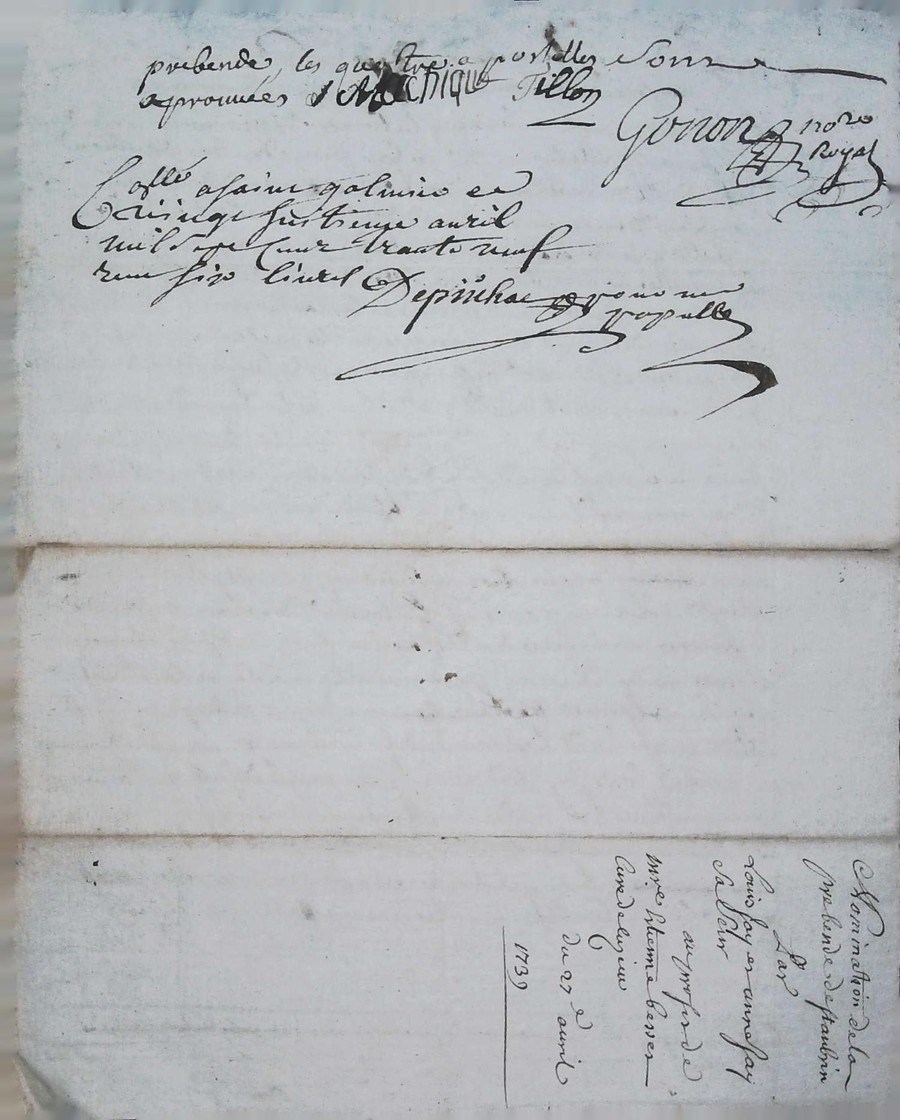 prebende, les quattre apostilles sont
aprouuées Tillon
Gonon nore
Royal
Collé a saint galmier ce
vingt huitieme auril
mil sept cent trante neuf
receu six liures Depinhac
Nomination de la
prebende de
Par
Louis fay et anne fay
sa seur
au profit de
mre Etienne besson
cure de
du 27e auril
1739